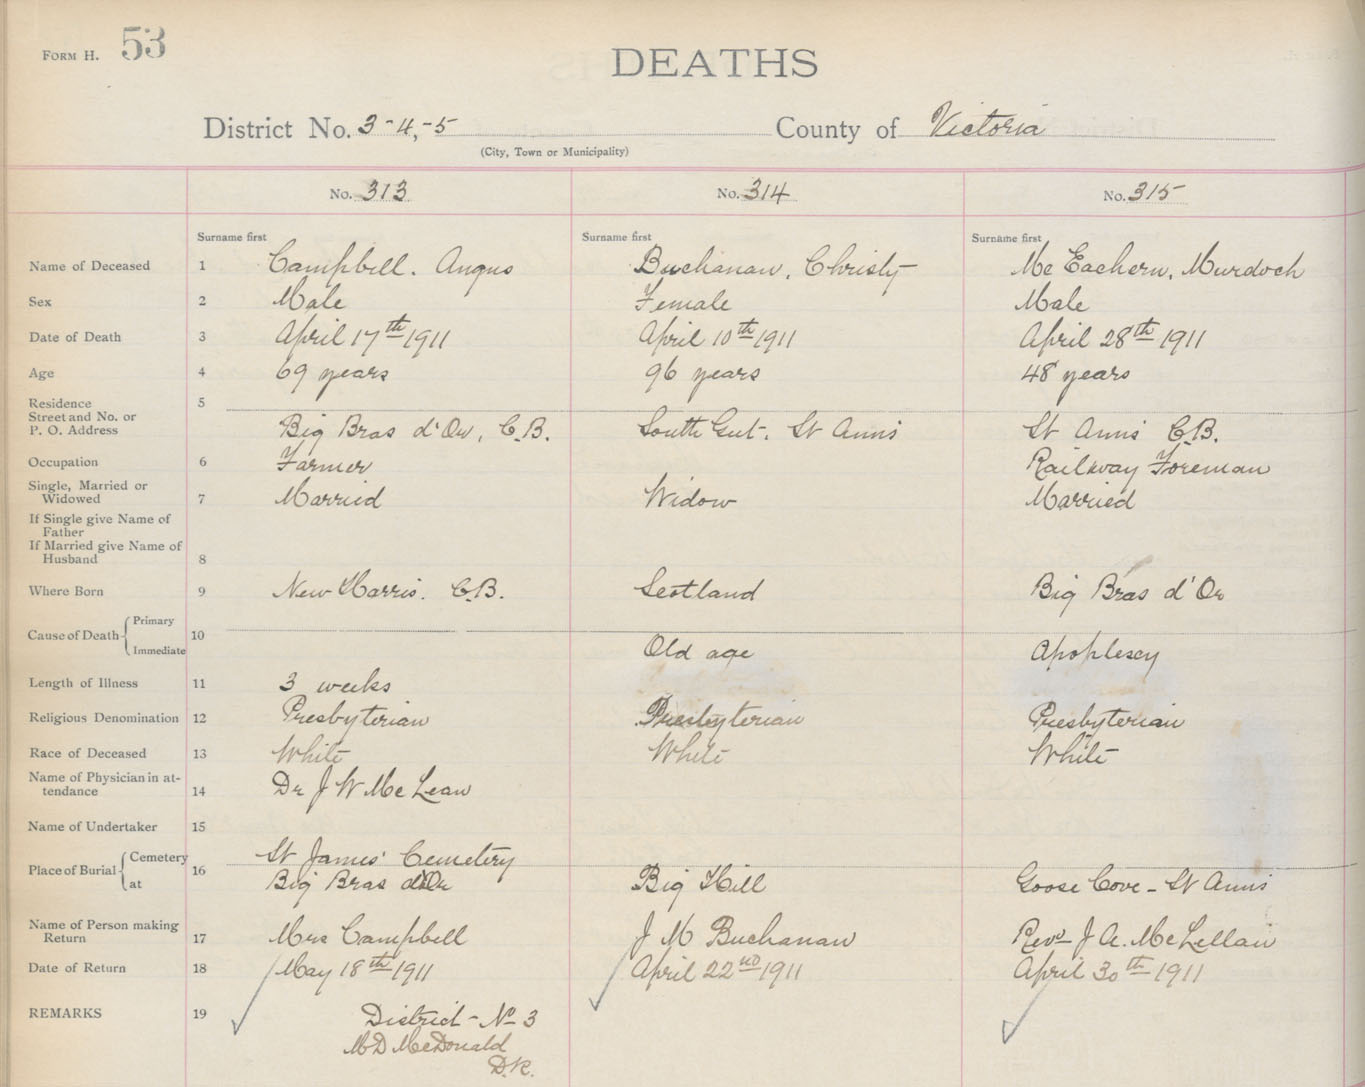 FORM H. 53
DEATHS
District No. 3-4,-5 County of Victoria
(City, Town or Municipality)
No. 313 No. 314 No. 315
Surname first Surname first Surname first
Name of Deceased 1 Campbell. Angus Buchanan, Christy Mc Eachern, Murdoch
Sex 2 Male Female Male
Date of Death 3 April 17th 1911 April 10th 1911 April 28th 1911
Age 4 69 years 96 years 48 years
Residence 5
Street and No. or
P. O. Address Big Bras d'Or, C.B. South Gut. St Anns St Anns C.B.
Occupation 6 Farmer Railway Foreman
Single, Married or
Widowed 7 Married Widow Married
If Single give Name of
Father
If Married give Name of
Husband 8
Where Born 9 New Harris. C.B. Scotland Big Bras d'Or
Cause of Death Primary 10
Immediate Old age Apoplexy
Length of Illness 11 3 weeks
Religious Denomination 12 Presbyterian Presbyterian Presbyterian
Race of Deceased 13 White White White
Name of Physician in at-
tendance 14 Dr J W Mc Lean
Name of Undertaker 15
Place of Burial Cemetery 16 St James' Cemetery
at Big Bras d'Or Big Hill Goose Cove - St Anns
Name of Person making
Return 17 Mrs Campbell J M Buchanan Revd J A. McLellan
Date of Return 18 May 18th 1911 April 22nd 1911 April 30th 1911
REMARKS 19 District - No 3
M D McDonald
D.R.